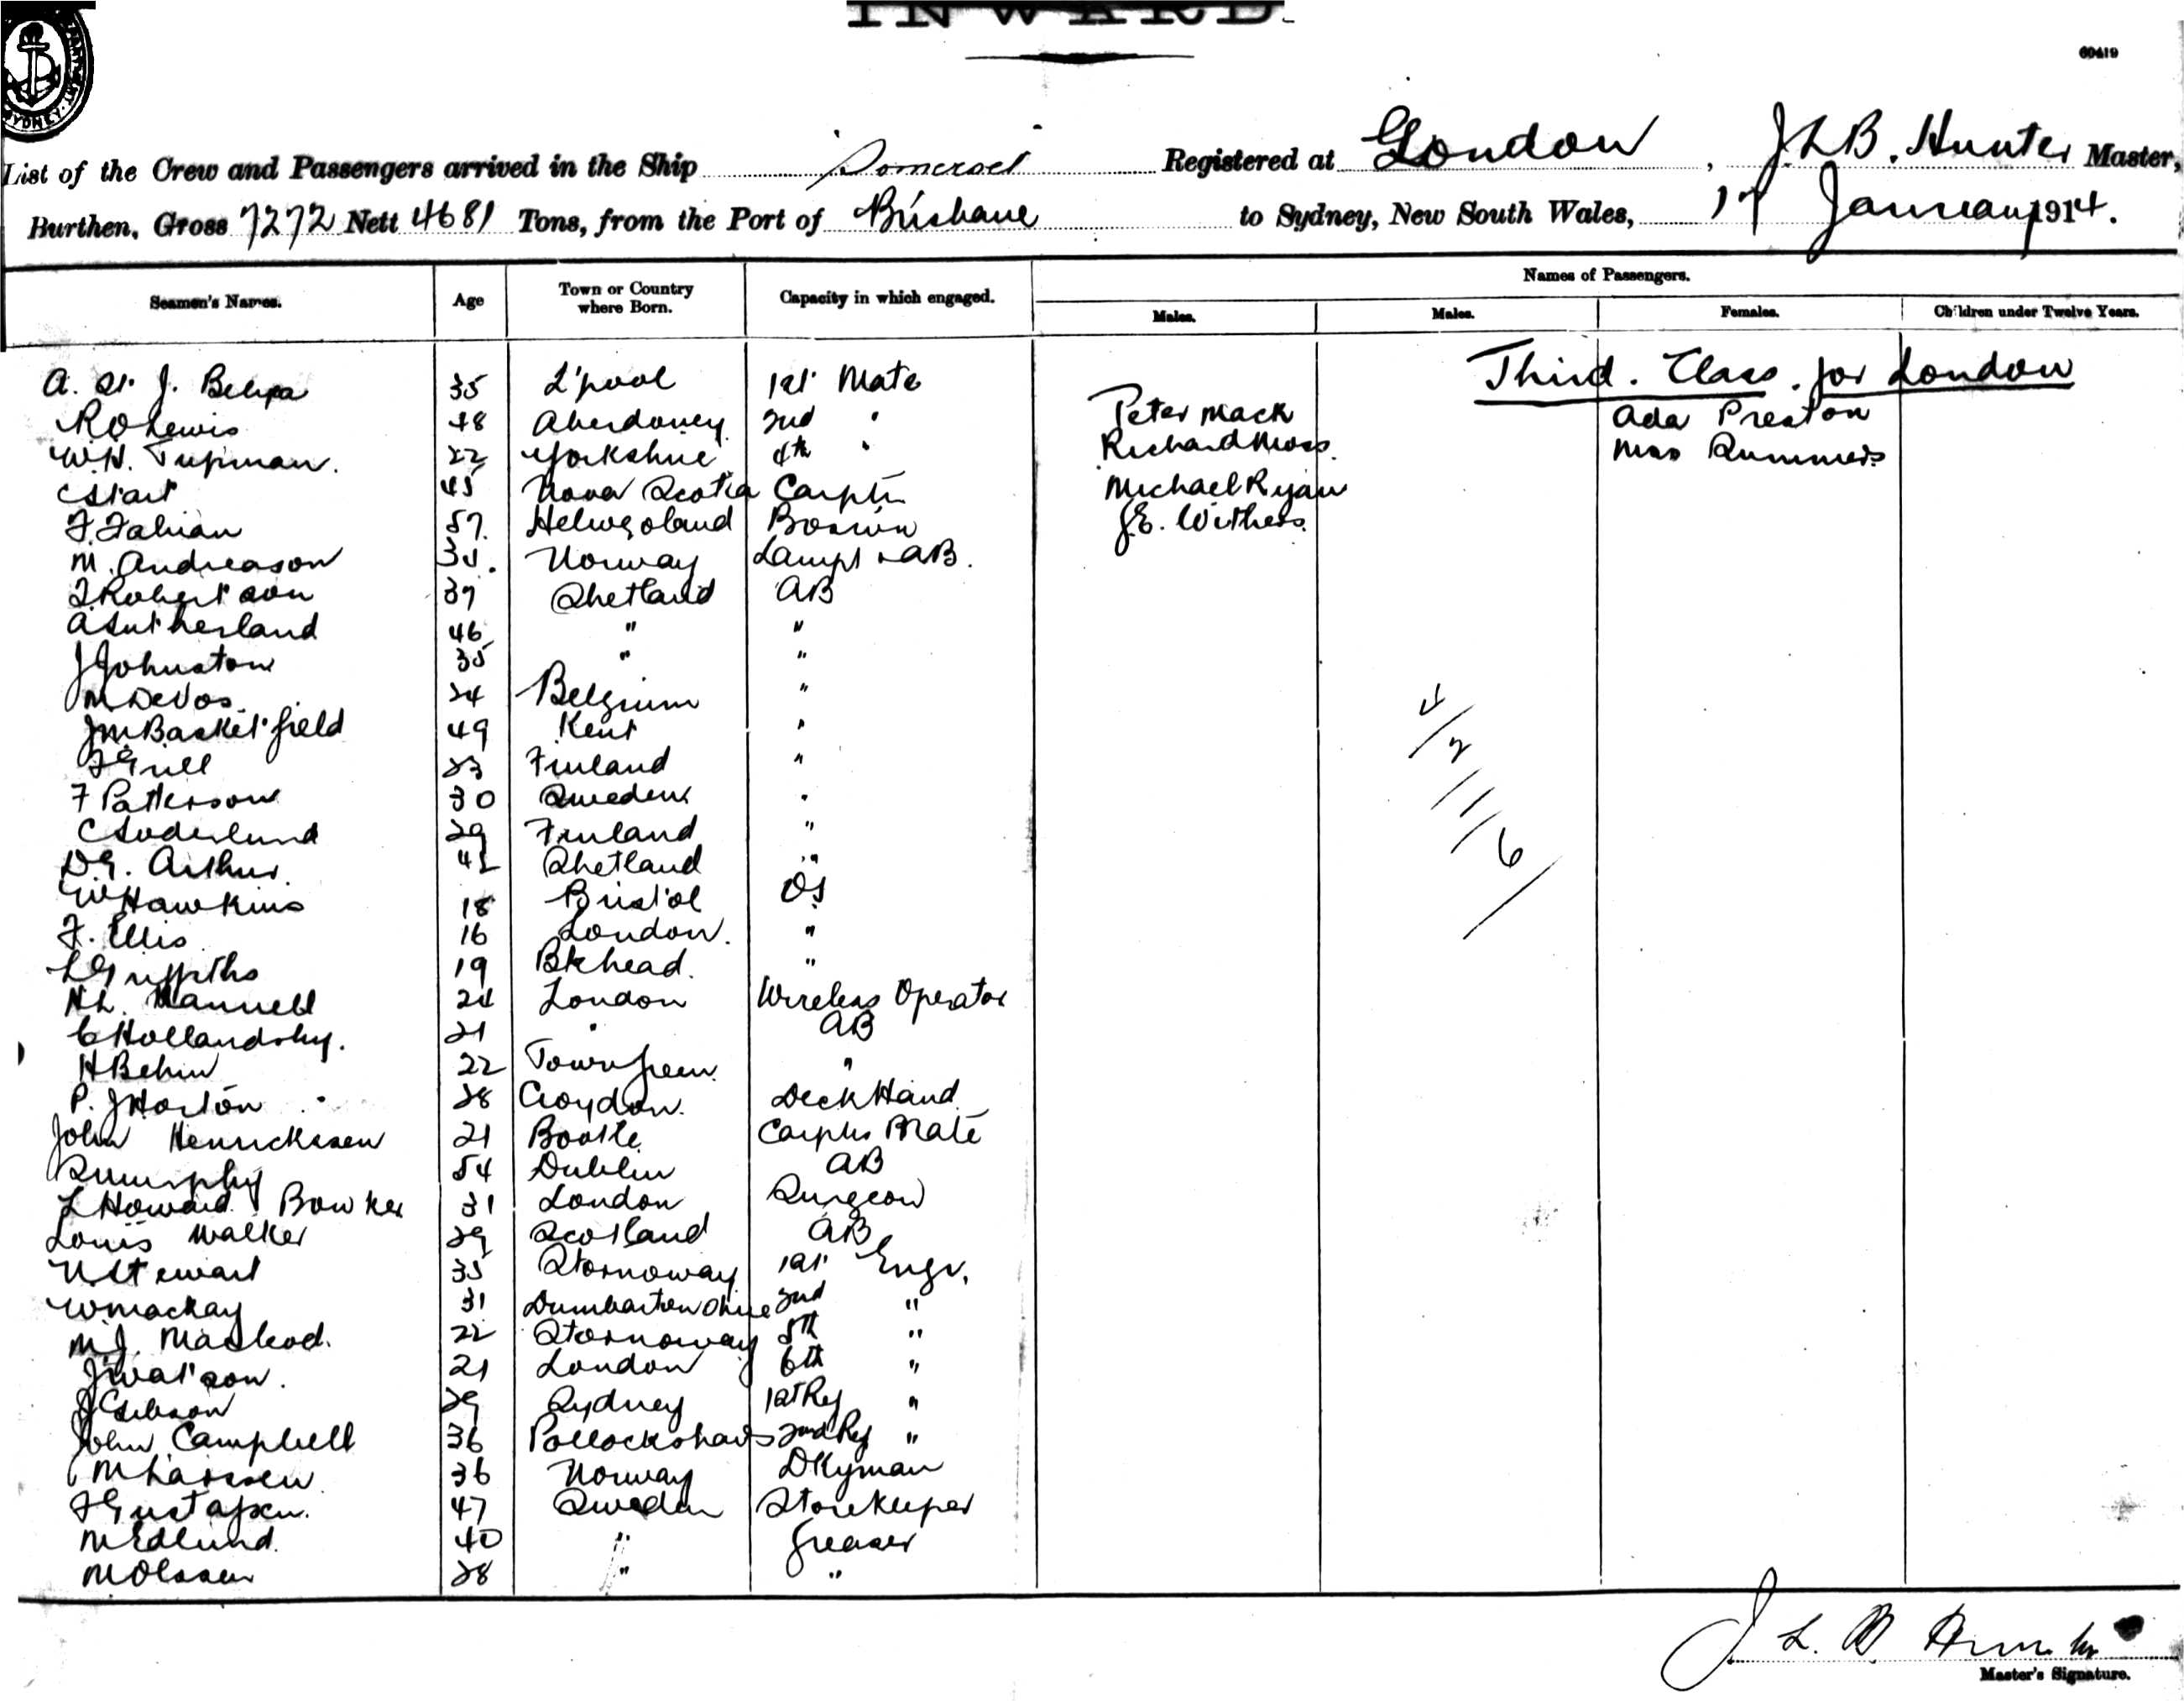 INWARD.
60419
SYDNEY
List of the Crew and Passengers arrived in the Ship Somerset Registered at London, J L B. Hunter Master,
Burthen, Gross 7272 Nett 4681 Tons, from the Port of Brisbane to Sydney, New South Wales, 17 January 1914.
Seamen's Names. Age Town or Country where Born. Capacity in which engaged. Names of Passengers.
Males. Males. Females. Children under Twelve Years.
Third. Class. for London
A. St. J. 35 L'pool 1st Mate
R O Lewis 48 Aberdovey 2nd " Peter Mack Ada Preston
W.H. Tupman. 22 Yorkshire 4th " Richard Moss. Mrs Summers
C Start 45 Nova Scotia Carptr Michael Ryan
F. Fabian 57. Heligoland Bosun J.E. Withers.
M. Andreason 35. Norway Lamps & AB.
Robertson 37 Shetland AB
A Sutherland 46 " "
J Johnston 35 " "
M DeVos. 24 Belgium "
J M Basketfield 49 Kent "
F Grill 23 Finland "
F Patterson 30 Sweden "
C Suderlund 29 Finland "
D.G. Arthur. 42 Shetland "
W Hawkins 18 Bristol OS
F. Ellis 16 London. "
L Griffiths 19 Bkhead. "
H L. Mannell 24 London Wireless Operator
C Hollandsby. 21 " AB
H Behin 22 Town Green "
P. J Horton 28 Croydon. Deck Hand
John Henrickssen 21 Bootle Carptrs Mate
S Murphy 54 Dublin AB
L Howard Bowker 31 London Surgeon
Louis Walker 29 Scotland AB
N. Stewart 35 Stornoway 1st Engr.
W Mackay 31 Dumbartonshire 2nd "
M J. MacLeod. 22 Stornoway 5th "
J Watson. 21 London 6th "
J Gibson 29 Sydney 1st Ref "
John Campbell 36 Pollockshaws 2nd Ref "
M Larssen 36 Norway Dkyman
F Gustafsen. 47 Sweden Storekeeper
M Edlund. 40 " Greaser
M Olssen 28 " "
4/2/1/1/6/
J L. B Hunter
Master's Signature.